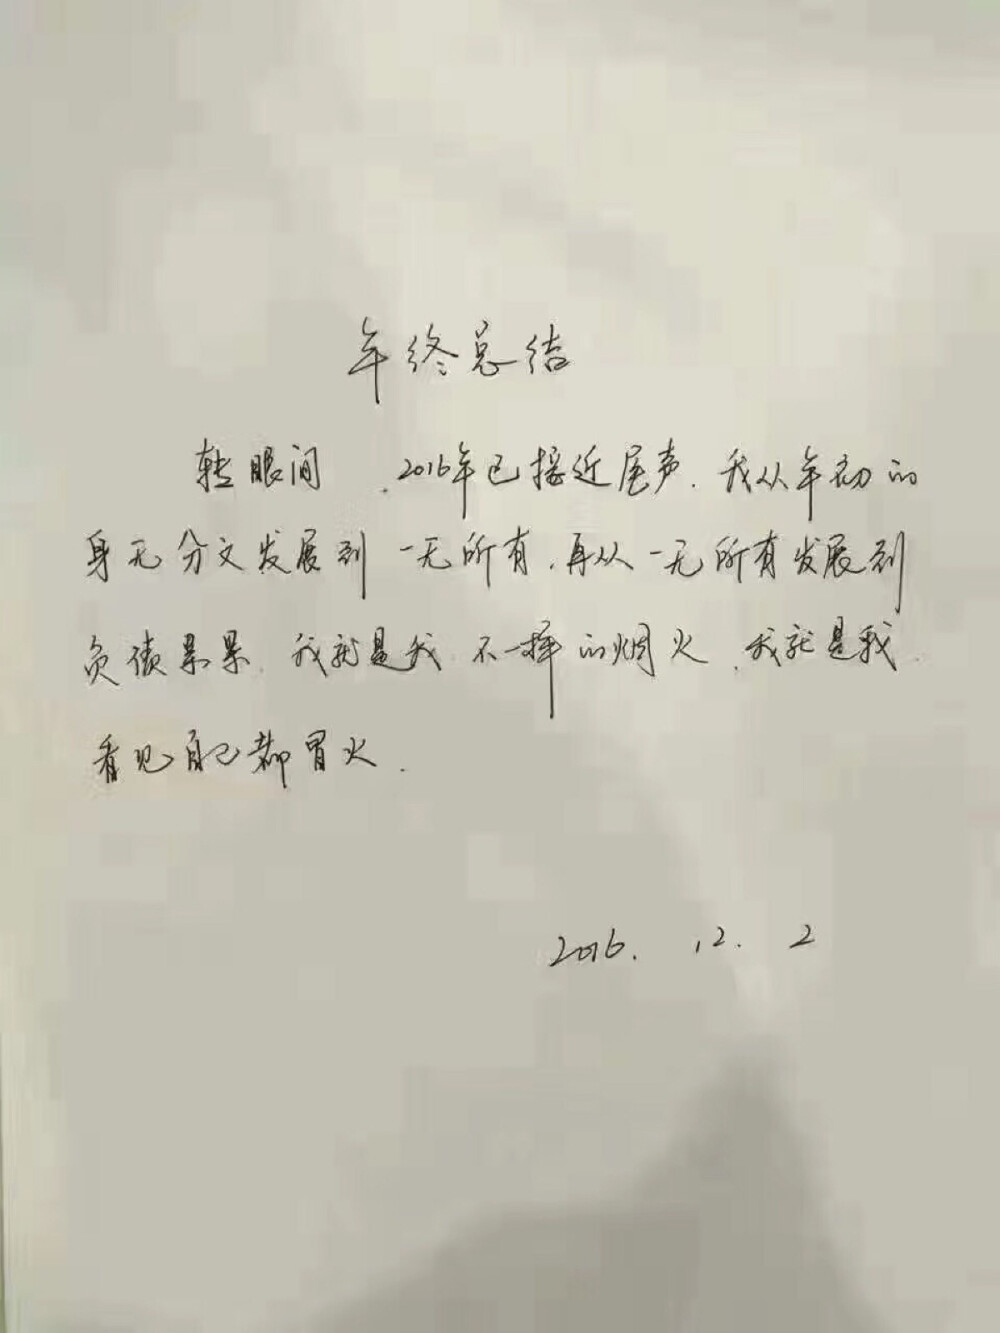 年终总结
转眼间,2016年已接近尾声.我从年初的
身无分文发展到一无所有.再从一无所有发展到
负债累累.我就是我 不一样的烟火.我就是我.
看见自己都冒火.
2016.12.2